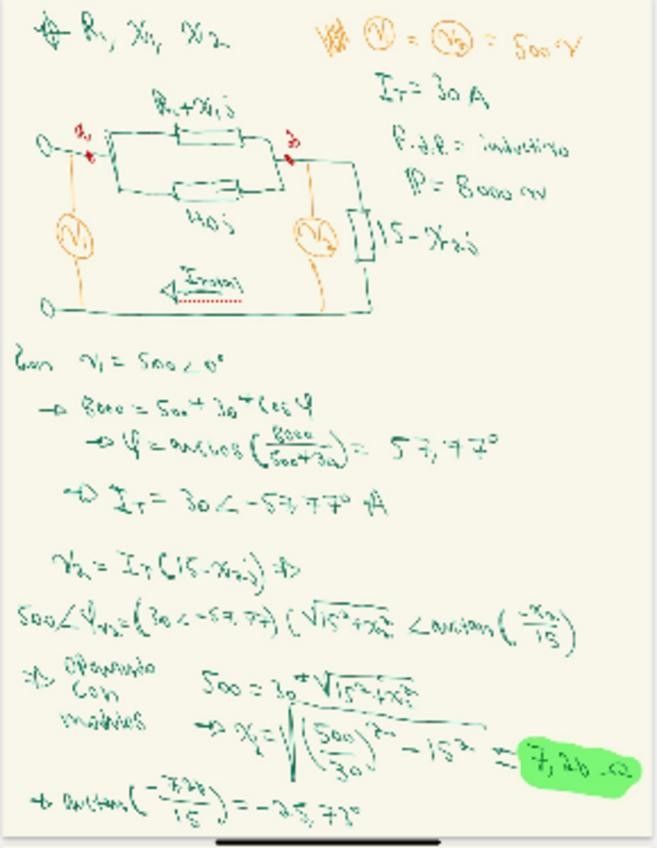 R₁, X₁, X₂
V₁ = V₂ = 500 V
I_T = 30 A
R₁+X₁j
F.d.P. = inductivo
P = 8000 W
40j
V₁
V₂
15-X₂j
I_total
Con V₁ = 500∠0°
→ 8000 = 500*30*cos φ
→ φ = arccos (8000/500*30) = 57,77°
→ I_T = 30∠-57,77° A
V₂ = I_T (15-X₂j) ⇒
500∠φ_V₂ = (30∠-57,77) (√15²+X₂² ∠arctan(-X₂/15)
⇒ operando con módulos
500 = 30*√15²+X₂²
→ X₂ = √(500/30)² - 15² = 7,26 Ω
→ arctan(-7,26/15) = -25,73°